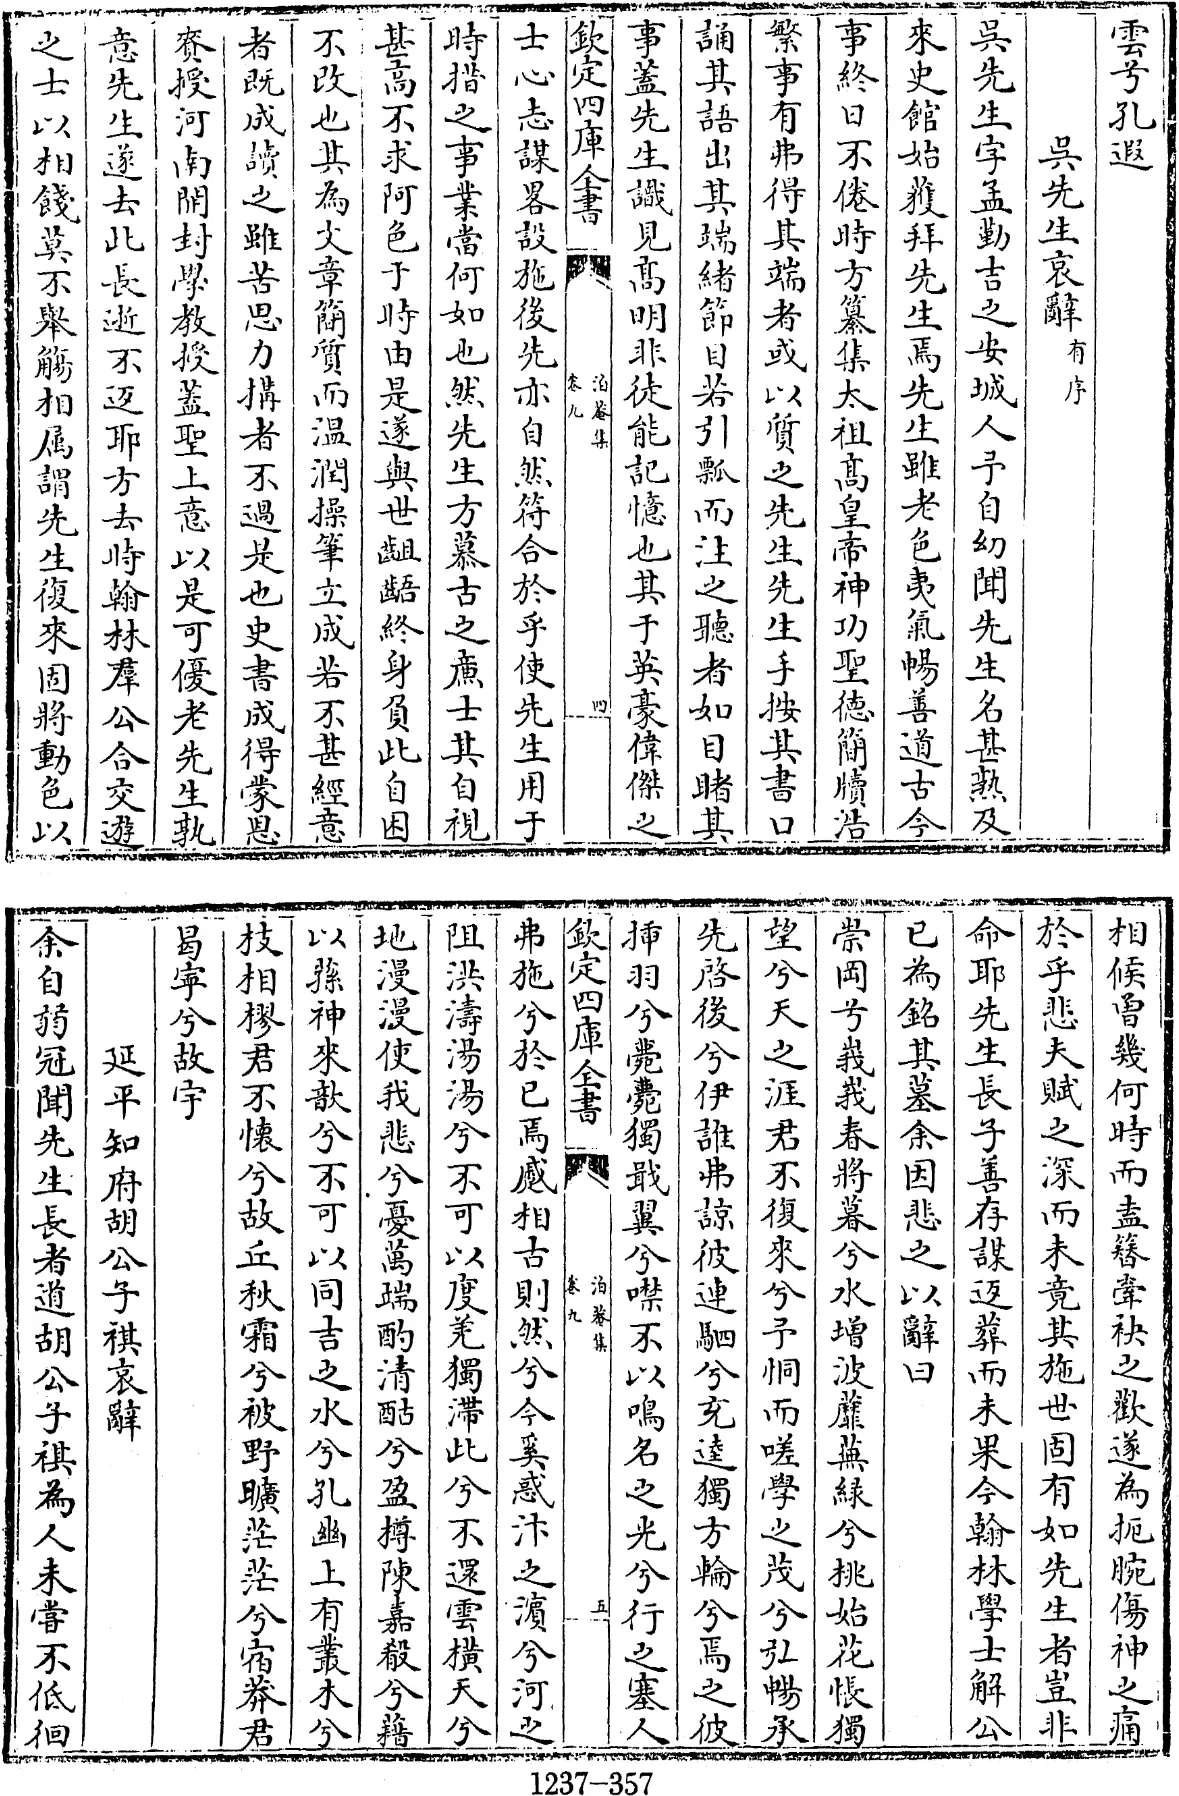 雲兮孔遐
吳先生哀辭有序
吳先生字孟勤吉之安城人予自幼聞先生名甚熟及
來史館始獲拜先生焉先生雖老色夷氣暢善道古今
事終日不倦時方纂集太祖髙皇帝神功聖德簡牘浩
繁事有弗得其端者或以質之先生先生手按其書口
誦其語出其端緒節目若引瓢而注之聽者如目睹其
事蓋先生識見髙明非徒能記憶也其于英豪偉傑之
欽定四庫全書
泊菴集
卷九
四
士心志謀畧設施後先亦自然符合於乎使先生用于
時措之事業當何如也然先生方慕古之廉士其自視
甚高不求阿色于時由是遂與世齟齬終身負此自困
不改也其為文章簡質而温潤操筆立成若不甚經意
者既成讀之雖苦思力搆者不過是也史書成得蒙恩
賚授河南開封學教授蓋聖上意以是可優老先生孰
意先生遂去此長逝不返耶方去時翰林羣公合交遊
之士以相餞莫不舉觴相属謂先生復來固將動色以
相候曽幾何時而盍簪牽袂之歡遂為扼腕傷神之痛
於乎悲夫賦之深而未竟其施世固有如先生者豈非
命耶先生長子善存謀返葬而未果今翰林學士解公
已為銘其墓余因悲之以辭曰
崇岡兮峩峩春將暮兮水增波蘼蕪緑兮桃始花悵獨
望兮天之涯君不復來兮予恫而嗟學之茂兮弘暢承
先啓後兮伊誰弗諒彼連駟兮充逵獨方輪兮焉之彼
揷羽兮薨薨獨戢翼兮噤不以鳴名之光兮行之塞人
欽定四庫全書
泊菴集
卷九
五
弗施兮於已焉慼相古則然兮今奚惑汴之濵兮河之
阻洪濤湯湯兮不可以度羌獨滯此兮不還雲橫天兮
地漫漫使我悲兮憂萬端酌清酤兮盈樽陳嘉殽兮藉
以蓀神來歆兮不可以同吉之水兮孔幽上有叢木兮
枝相樛君不懷兮故丘秋霜兮被野曠茫茫兮宿莽君
曷寧兮故宇
延平知府胡公子祺哀辭
余自弱冠聞先生長者道胡公子祺為人未嘗不低徊
1237-357